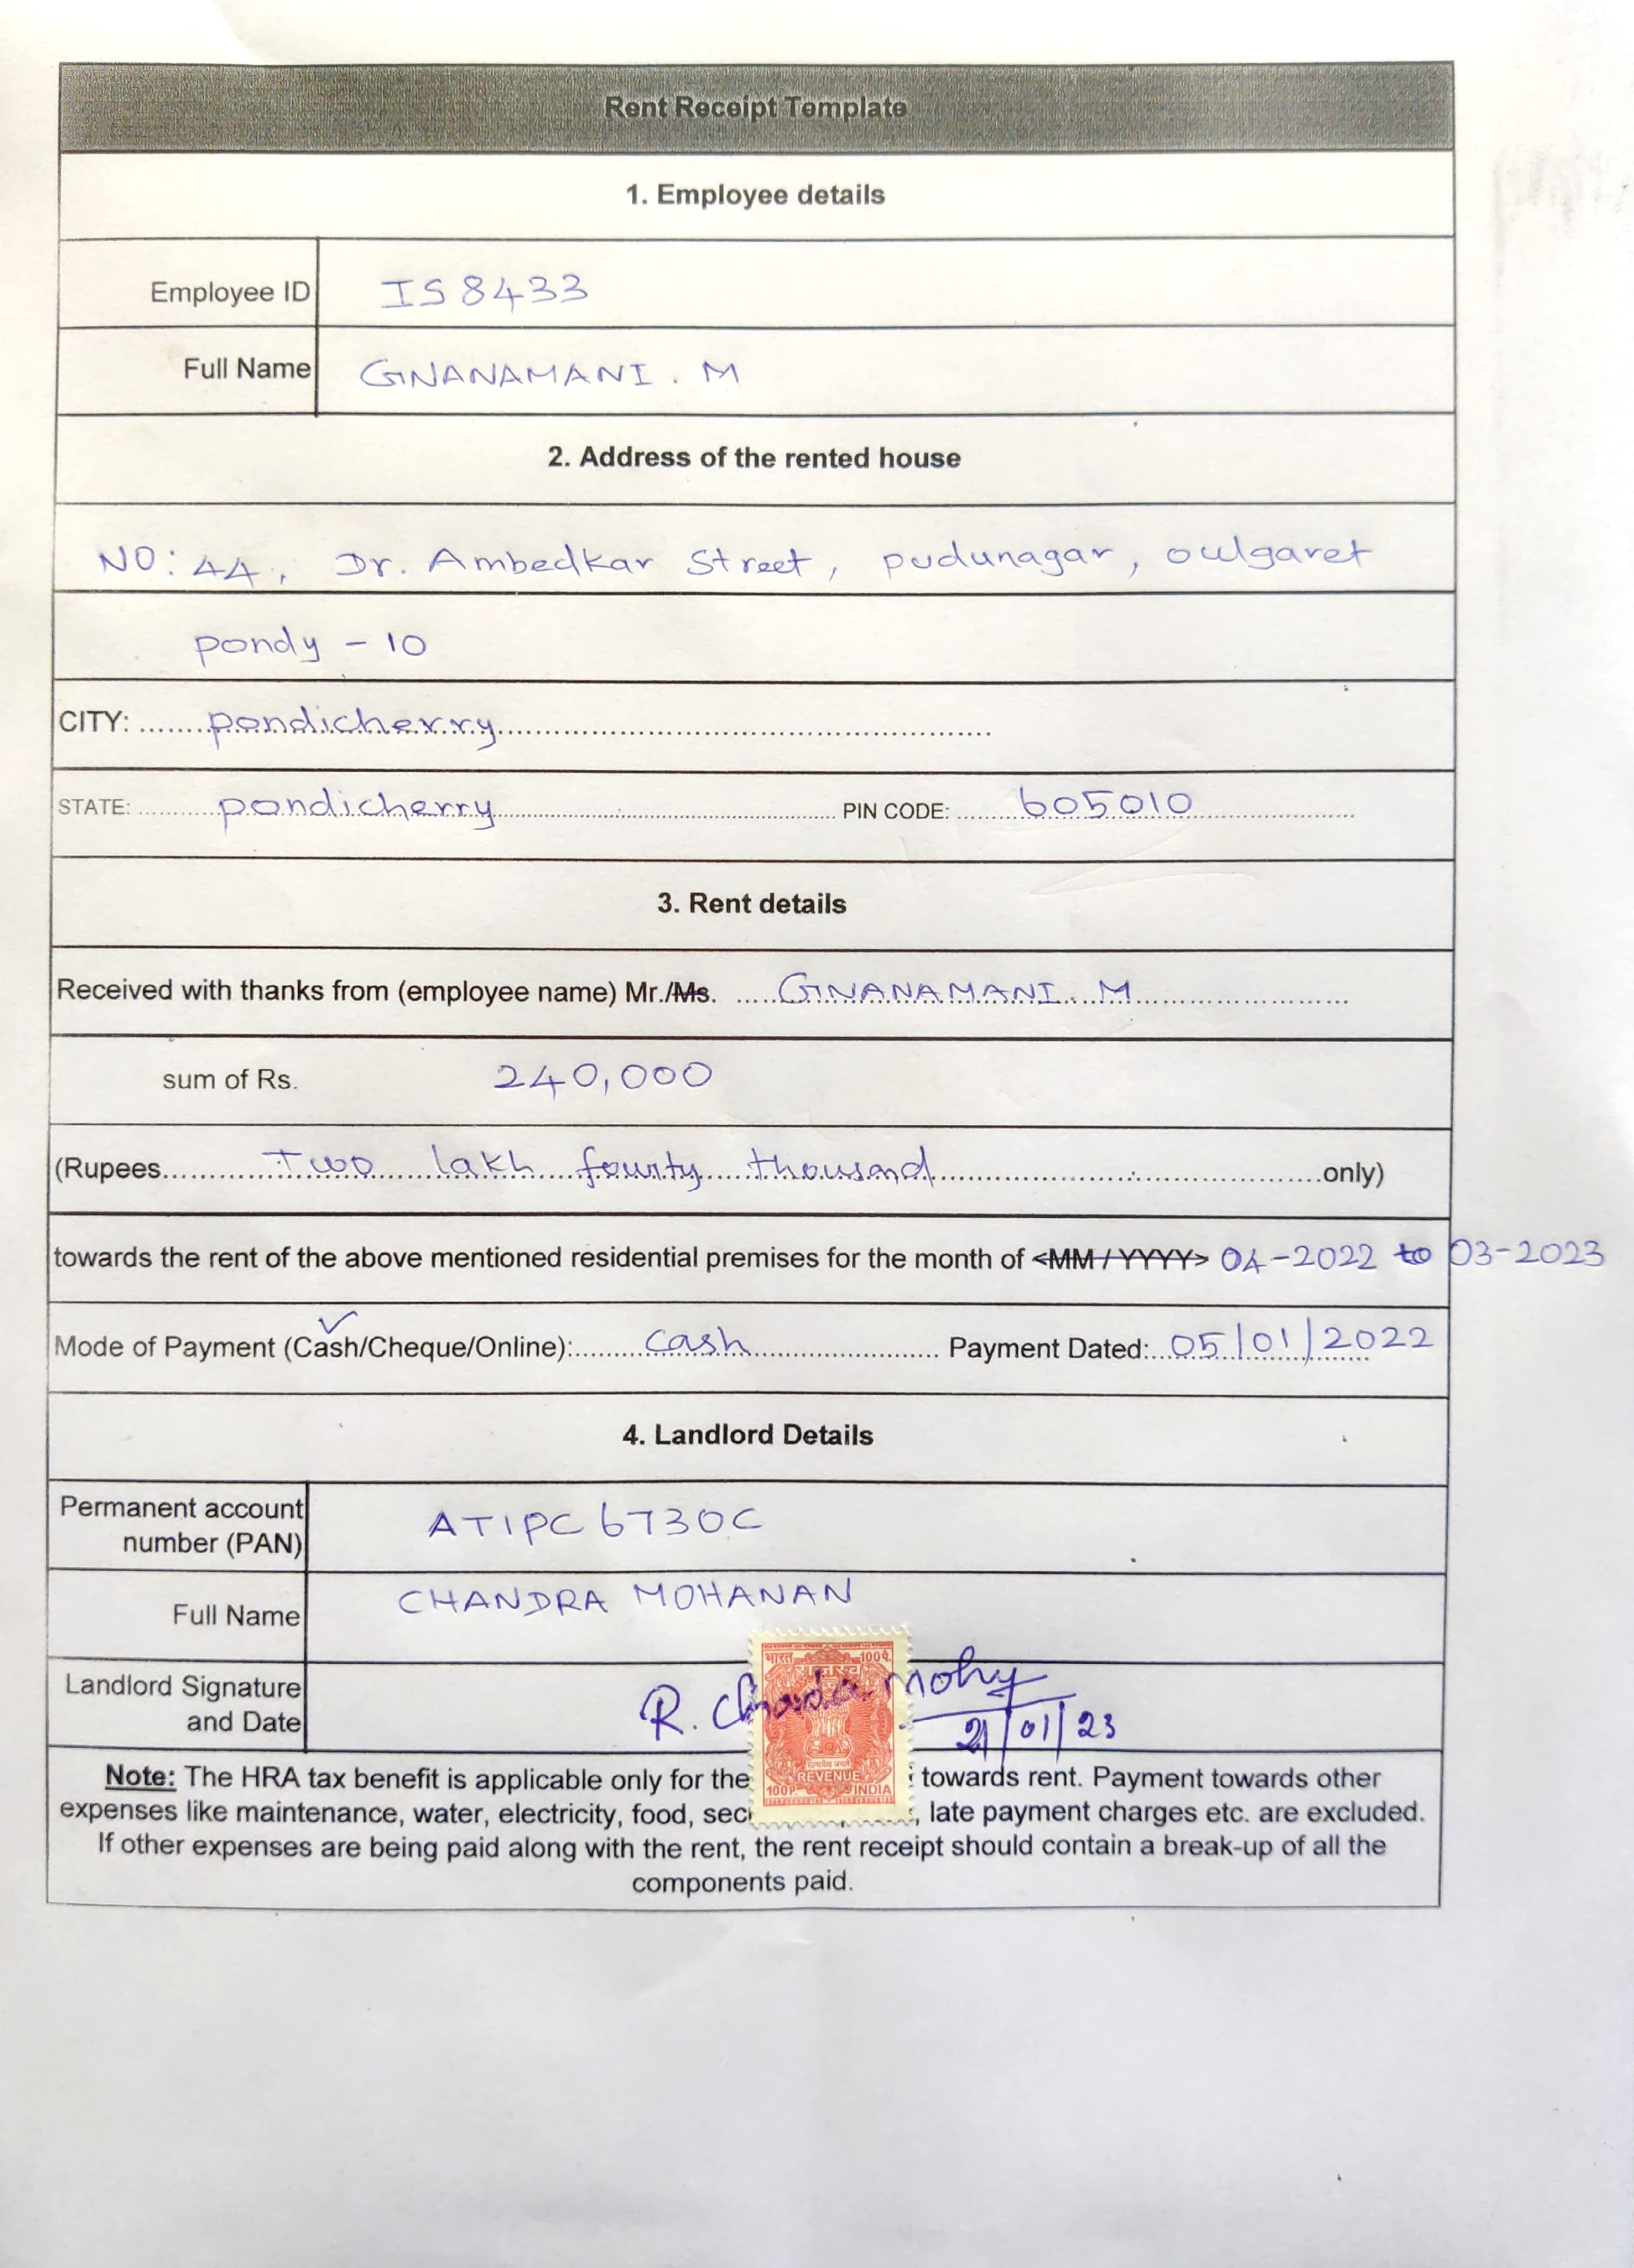 Rent Receipt Template
1. Employee details
Employee ID IS8433
Full Name GNANAMANI. M
2. Address of the rented house
NO: 44, Dr. Ambedkar Street, pudunagar, oulgaret
pondy - 10
CITY: pondicherry
STATE: pondicherry PIN CODE: 605010
3. Rent details
Received with thanks from (employee name) Mr./Ms. GNANAMANI. M
sum of Rs. 240,000
(Rupees Two lakh fourty thousand only)
towards the rent of the above mentioned residential premises for the month of <MM / YYYY> 04-2022 to 03-2023
Mode of Payment (Cash/Cheque/Online): Cash Payment Dated: 05/01/2022
4. Landlord Details
Permanent account
number (PAN) ATIPC6730C
Full Name CHANDRA MOHANAN
भारत 100प.
Landlord Signature R.
and Date 21/01/23
REVENUE
100P. INDIA
Note: The HRA tax benefit is applicable only for the towards rent. Payment towards other
expenses like maintenance, water, electricity, food, sec , late payment charges etc. are excluded.
If other expenses are being paid along with the rent, the rent receipt should contain a break-up of all the
components paid.